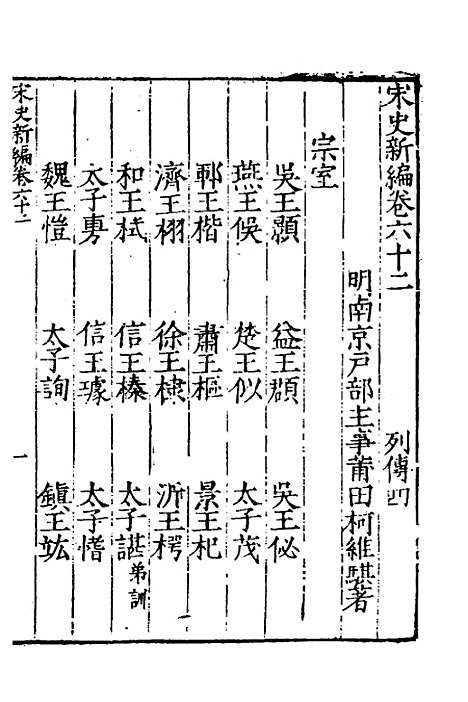 宋史新編卷六十二 列傳四
明南京戶部主事莆田柯維騏著
宗室
吳王顥 益王頵 吳王佖
燕王俁 楚王似 太子茂
鄆王楷 肅王樞 景王杞
濟王栩 徐王棣 沂王㮙
和王栻 信王榛 太子諶弟訓
太子旉 信王璩 太子愭
魏王愷 太子詢 鎮王竑
宋史新編卷六十二 一